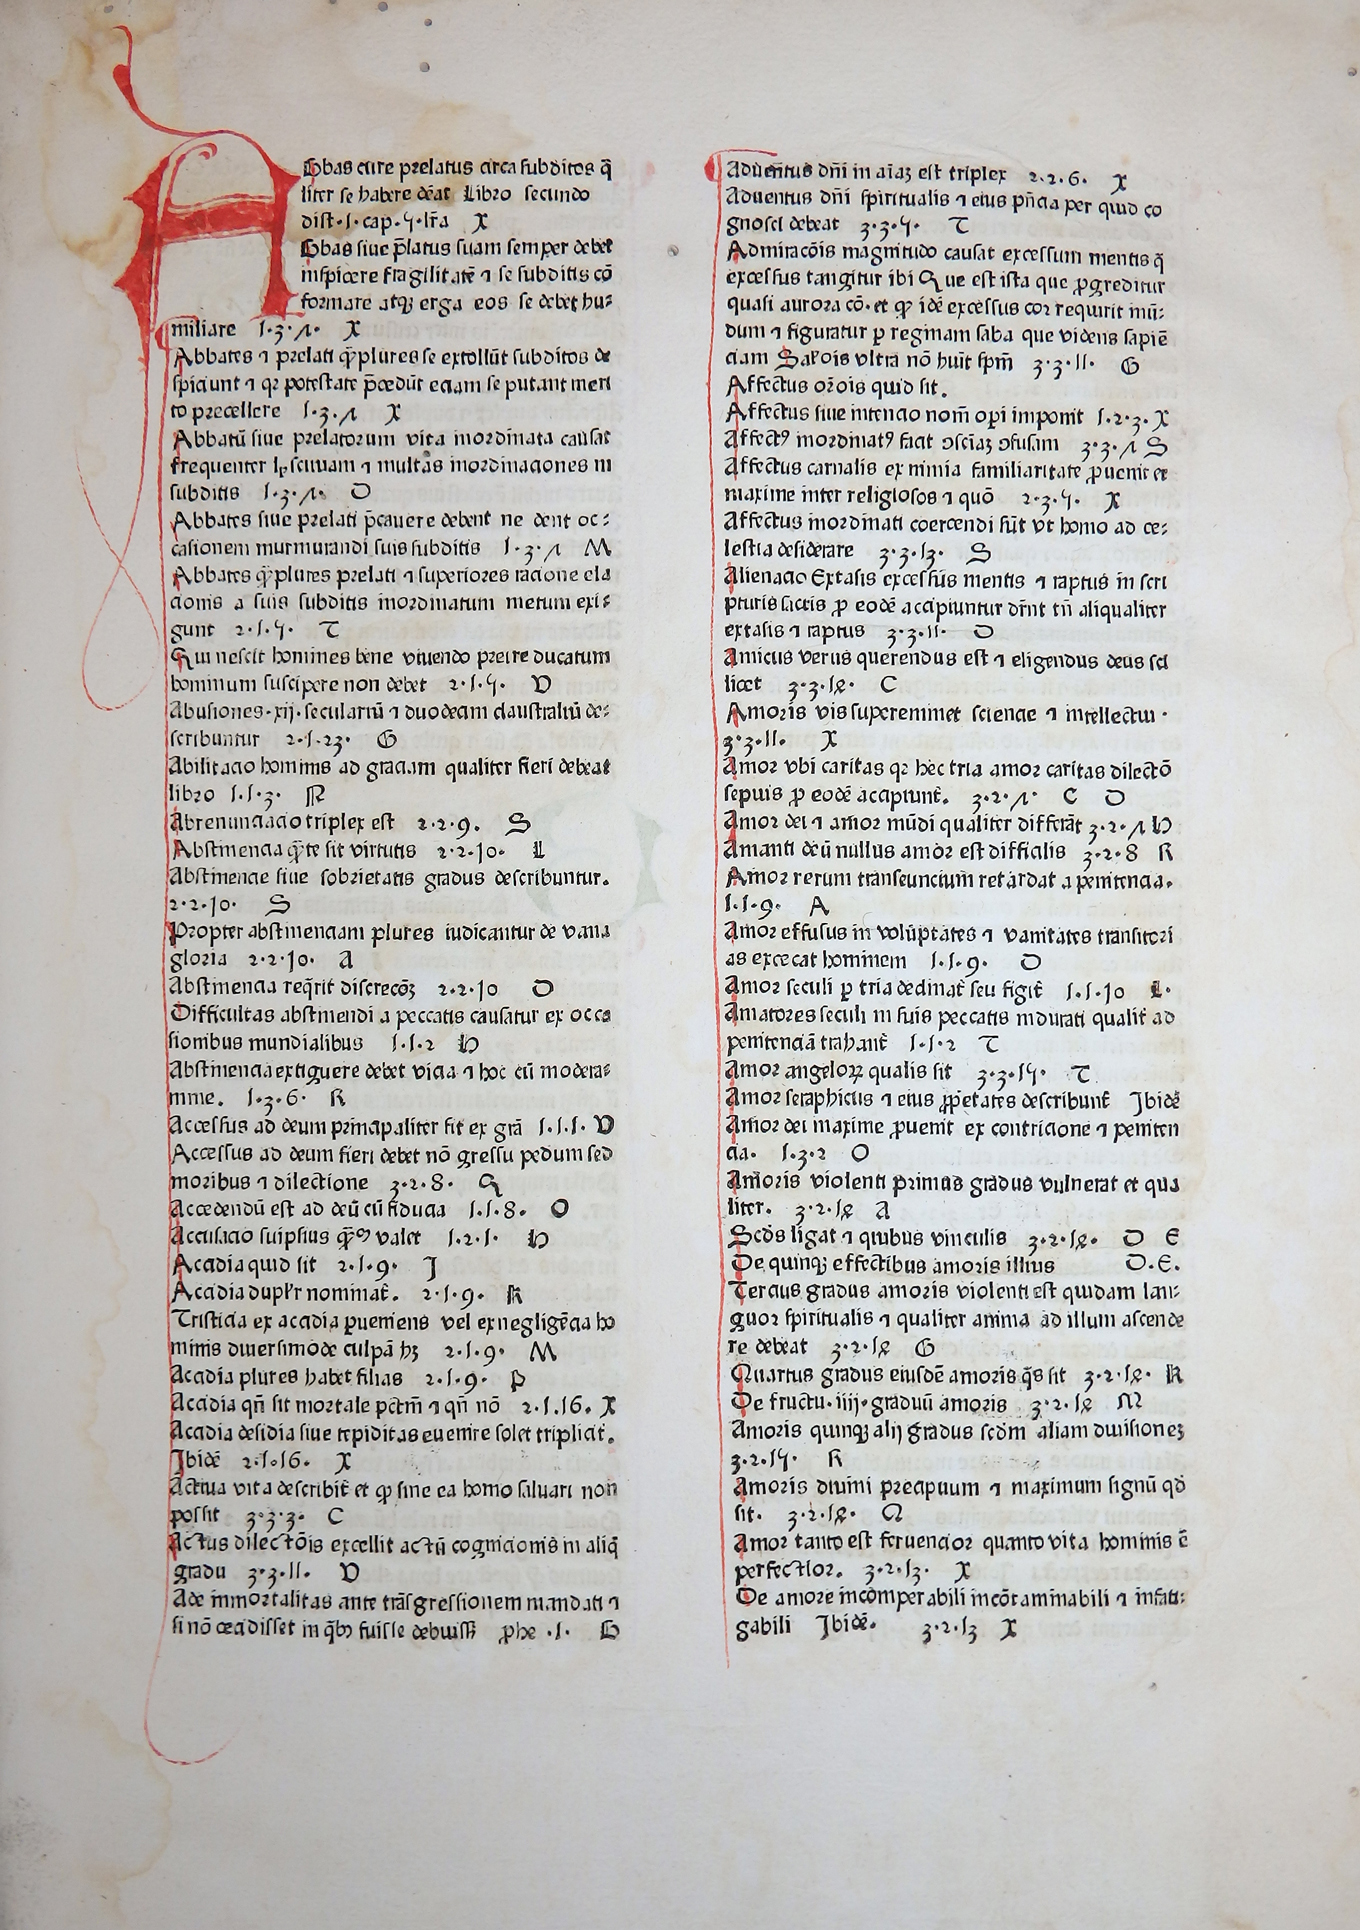 Abbas cure prelatus circa subditos q̄
liter se habere dēat Libro secundo
dist·1·cap·5·lr̄a X
Abbas siue p̄latus suam semper debet
inspicere fragilitatē ⁊ se subditis cō
formare atqꝫ erga eos se debet hu⸗
miliare 1·3·7· X
Abbates ⁊ prelati qꝫ plures se extollūt subditos de
spiciunt ⁊ qꝛ potestate p̄cedūt eciam se putant meri
to precellere 1·3·7 X
Abbatū siue prelatorum vita inordīnata causat
frequenter lasciuiam ⁊ multas inordinaciones in
subditis 1·3·7· O
Abbates siue prelati p̄cauere debent ne dent oc⸗
casionem murmurandi suis subditis 1·3·7 M
Abbates qꝫ plures prelati ⁊ superiores racione ela
cionis a suis subditis inordinatum metum exi⸗
gunt 2·1·5· T
Qui nescit homines bene viuendo preire ducatum
hominum suscipere non debet 2·1·5· V
Abusiones·xij·seculariū ⁊ duodecim claustraliū de⸗
scribuntur 2·1·23· G
Abilitacio hominis ad graciam qualiter fieri debeat
libro 1·1·3· R
Abrenunciacio triplex est 2·2·9. S
Abstinencia q̄ te sit virtutis 2·2·10· L
Abstinencie siue sobrietatis gradus describuntur.
2·2·10· S
Propter abstinenciam plures iudicantur de vana
gloria 2·2·10· A
Abstinencia req̇rit discrecōꝫ 2·2·10 O
Difficultas abstinendi a peccatis causatur ex occa
sionibus mundialibus 1·1·2 H
Abstinencia extiguere debet vicia ⁊ hoc cū modera⸗
mine. 1·3·6· K
Accessus ad deum principaliter fit ex grā 1·1·1· V
Accessus ad deum fieri debet nō gressu pedum sed
moribus ⁊ dilectione 3·2·8· Q
Accedendū est ad deū cū fiducia 1·1·8· O
Accusacio suipsius qꝫ valet 1·2·1· H
Acadia quid sit 2·1·9· J
Acadia dupl'r nominat᷑. 2·1·9· K
Tristicia ex acadia ꝓueniens vel ex negligēcia ho
minis diuersimode culpā hꝫ 2·1·9· M
Acadia plures habet filias 2·1·9· P
Acadia qn̄ sit mortale pctm̄ ⁊ qn̄ nō 2·1.16. X
Acadia desidia siue tepiditas euenire solet triplicit᷑.
Jbidē 2·1·16· X
Actiua vita describit᷑ et ꝙ sine ea homo saluari non
possit 3·3·3· C
Actus dilectōis excellit actū cognicionis in aliq̄
gradu 3·3·11· V
Ade inmortalitas ante trāsgressionem mandati ⁊
si nō cecidisset in q̇bꝰ fuisse debuissꝫ ꝓhe ·1· B
Aduentus dn̄i in aīaꝫ est triplex 2·2·6· X
Aduentus dn̄i spiritualis ⁊ eius pn̄cia per quid co
gnosci debeat 3·3·5· T
Admiracōis magnitudo causat excessum mentis q̄
excessus tangitur ibi Que est ista que ꝓgreditur
quasi aurora cō·et ꝙ idē excessus cor requirit mū⸗
dum ⁊ figuratur ꝑ reginam saba que videns sapiē
ciam Sal'ois vltra nō huit spm̄ 3·3·11· G
Affectus or̄ois quid sit.
Affectus siue intencio nom̄ oꝑi imponit 1·2·3·X
Affectꝰ inordinatꝰ facit ↄsciēaꝫ ↄfusam 3·3·7 S
Affectus carnalis ex nimia familiaritate ꝓuenit et
maxime inter religiosos ⁊ quō 2·3·5· X
Affectus inordinati coercendi sūt vt homo ad ce⸗
lestia desiderare 3·3·13· S
Alienacio Extasis excessus mentis ⁊ raptus in scri
pturis sacris ꝓ eodē accipiuntur dr̄nt tn̄ aliqualiter
extasis ⁊ raptus 3·3·11· O
Amicus verus querendus est ⁊ eligendus deus sci
licet 3·3·14· C
Amoris vis supereminet sciencie ⁊ intellectui ·
3·3·11· X
Amor vbi caritas qꝛ hec tria amor caritas dilectō
sepuis ꝓ eodē accipiunt᷑. 3·2·7· C O
Amor dei ⁊ amor mūdi qualiter differāt 3·2·7 H
Amanti deū nullus amor est difficilis 3·2·8 K
Amor rerum transeuncium retardat a penitencia.
1·1·9· A
Amor effusus in volūptates ⁊ vanitates transitori
as excecat hominem 1·1·9· O
Amor seculi ꝑ tria declinat᷑ seu figit᷑ 1·1·10 L·
Amatores seculi in suis peccatis indurati qualit᷑ ad
penitenciā trahant᷑ 1·1·2 T
Amor angeloꝝ qualis sit 3·3·15· T
Amor seraphicus ⁊ eius ꝓpetates describunt᷑ Jbidē
Amor dei maxime ꝓuenit ex contricione ⁊ peniten
cia· 1·3·2 O
Amoris violenti primus gradus vulnerat et qua
liter. 3·2·14 A
Scds ligat ⁊ quibus vinculis 3·2·14· D E
De quinqꝫ effectibus amoris illius D·E·
Tercius gradus amoris violenti est quidam lan⸗
guor spiritualis ⁊ qualiter anima ad illum ascende
re debeat 3·2·14 G
Quartus gradus eiusdē amoris q̇s sit 3·2·14· K
De fructu·iiij·graduū amoris 3·2·14 M
Amoris quinqꝫ alij gradus scdm aliam diuisioneꝫ
3·2·15· K
Amoris diuini precipuum ⁊ maximum signū qd̄
sit. 3·2·14· Q
Amor tanto est feruencior quanto vita hominis ē
perfectior. 3·2·13· X
De amore incōmperabili incōtaminabili ⁊ infati⸗
gabili Jbidē· 3·2·13 X